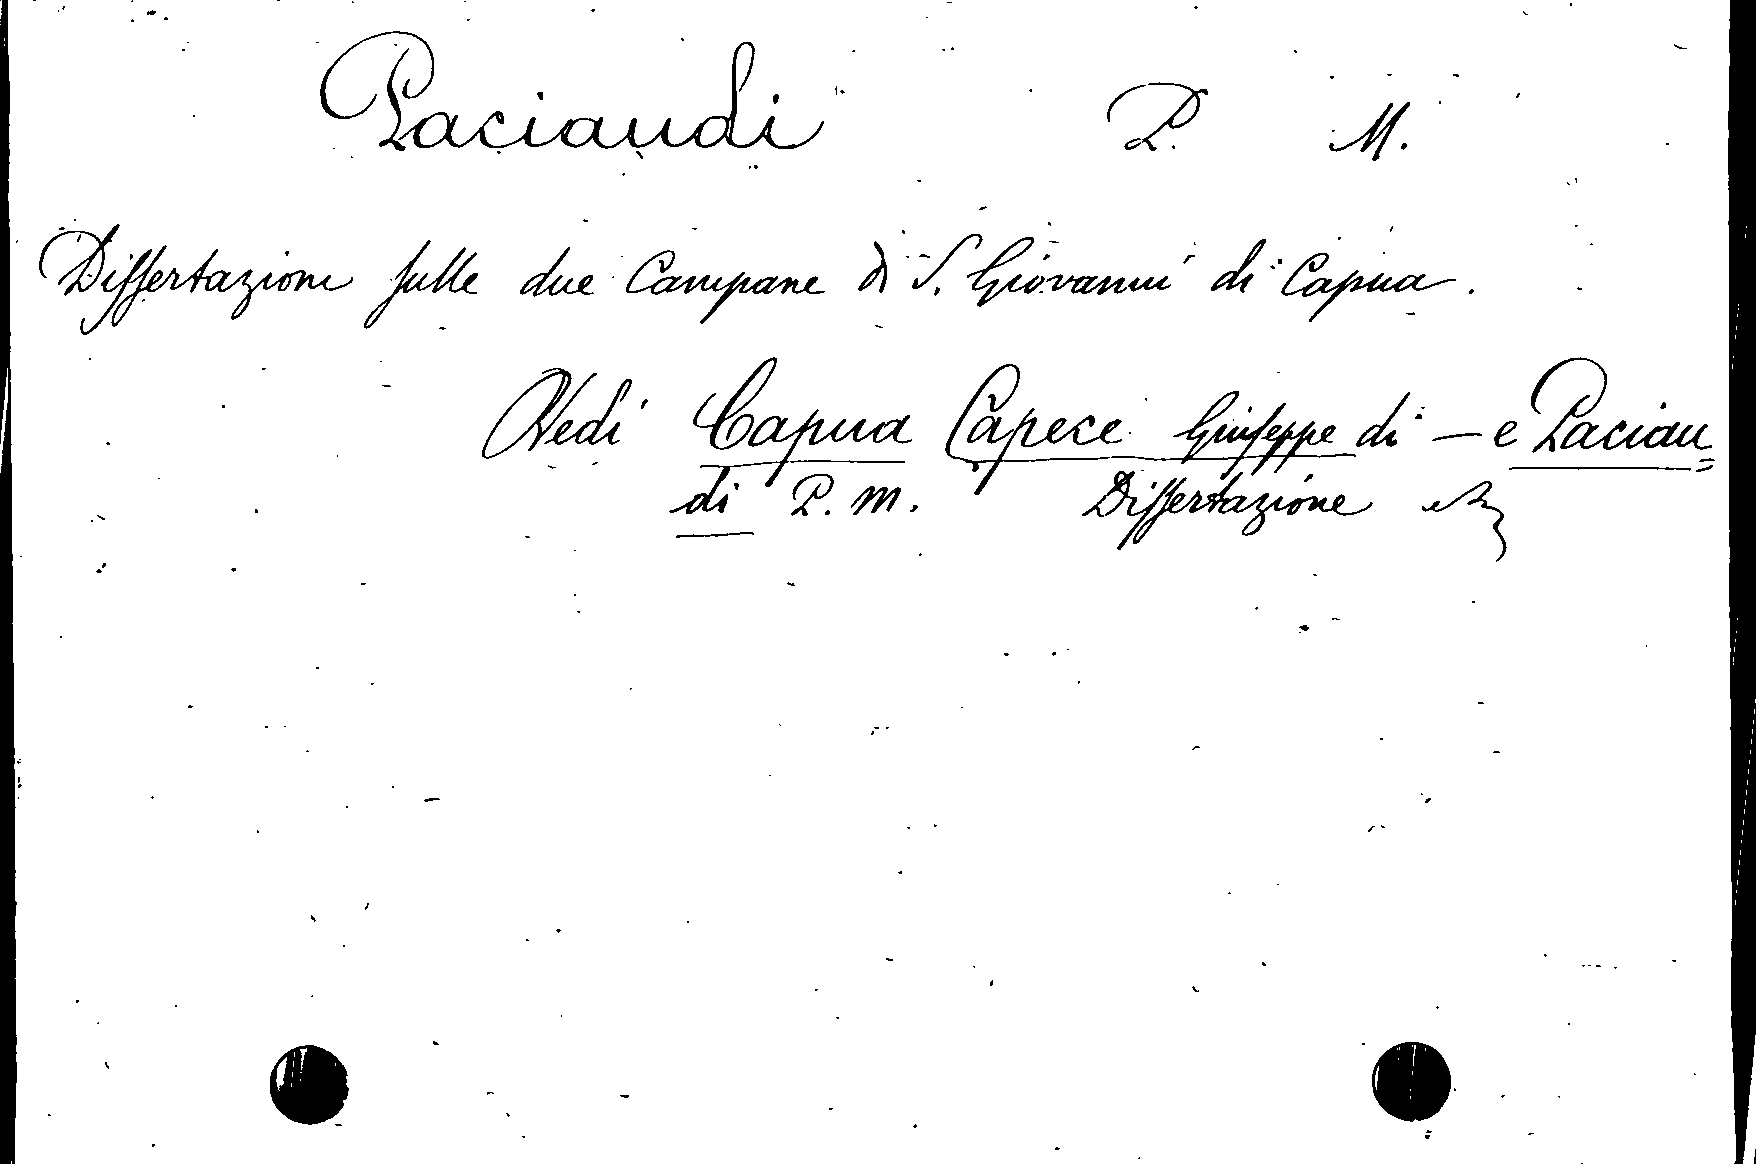 Paciaudi P. M.
Dissertazione sulle due Campane di S. Giovanni di Capua.
Vedi Capua Capece Giuseppe di — e Paciau=
di P. M. Dissertazione